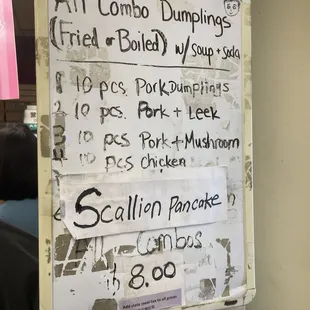 All Combo Dumplings
(Fried or Boiled) w/ Soup + Soda
1 10 pcs. Pork Dumplings
2 10 pcs. Pork + Leek
3 10 pcs Pork + Mushroom
4 10 pcs chicken
Scallion Pancake
All Combos
$ 8.00